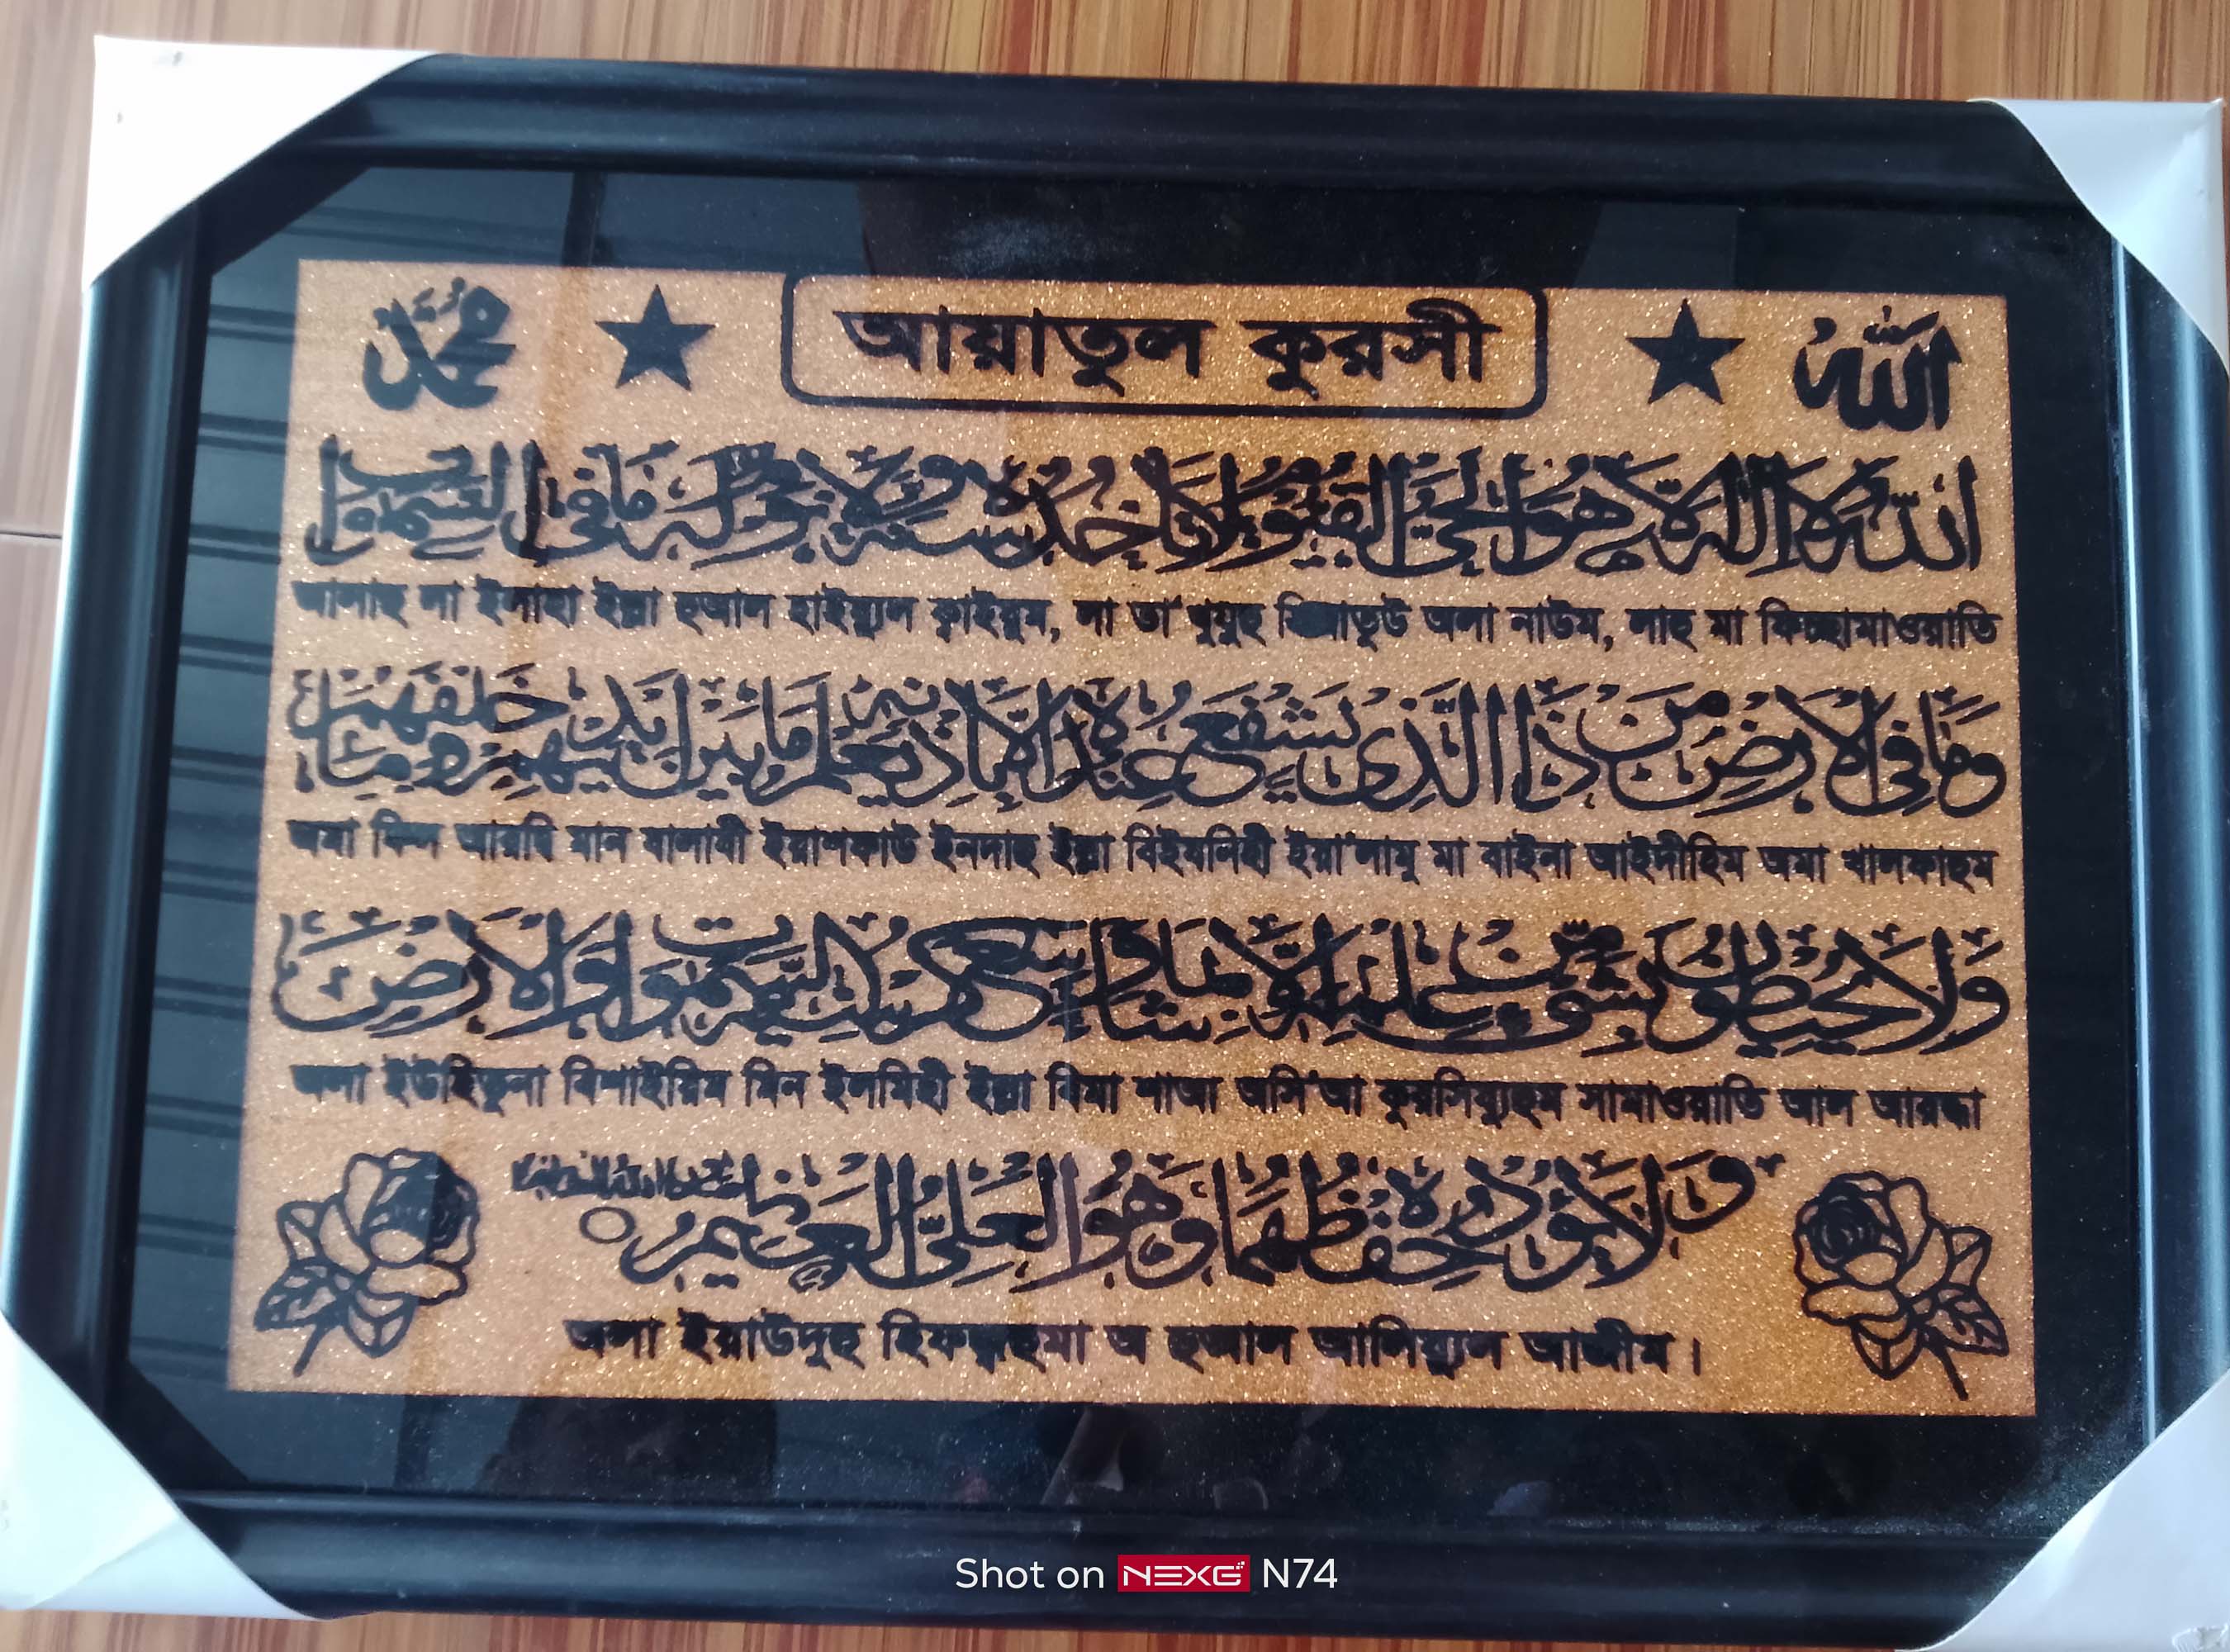 محمد আয়াতুল কুরসী الله
الله لا اله الا هو الحي القيوم لا تاخذه سنة ولا نوم له ما في السموت
আলাহু লা ইলাহা ইল্লা হুআল হাইয়্যুল ক্বাইয়ুম, লা তা'খুযুহু অলা নাউম, লাহু মা ফিচ্ছামাওয়াতি
وما في الارض من ذا الذي يشفع عنده الا باذنه يعلم ما بين ايديهم وما خلفهم
অমা ফিল আরযি মান যালাযী ইয়াশফাউ ইনদাহু ইল্লা বিইযনিহী ইয়া'লামু মা বাইনা আইদীহিম অমা খালফাহুম
ولا يحيطون بشيء من علمه الا بما شاء وسع كرسيه السموت والارض
অলা ইউহিতুনা বিশাইয়িম মিন ইলমিহী ইল্লা বিমা শাআ অসি'আ কুরসিয়্যুহুম সামাওয়াতি আল আরদ্বা
ولا يوده حفظهما وهو العلي العظيم
অলা ইয়াউদুহু হিফযুহুমা অ হুআল আলিয়্যুল আজীম।
Shot on NEXG N74